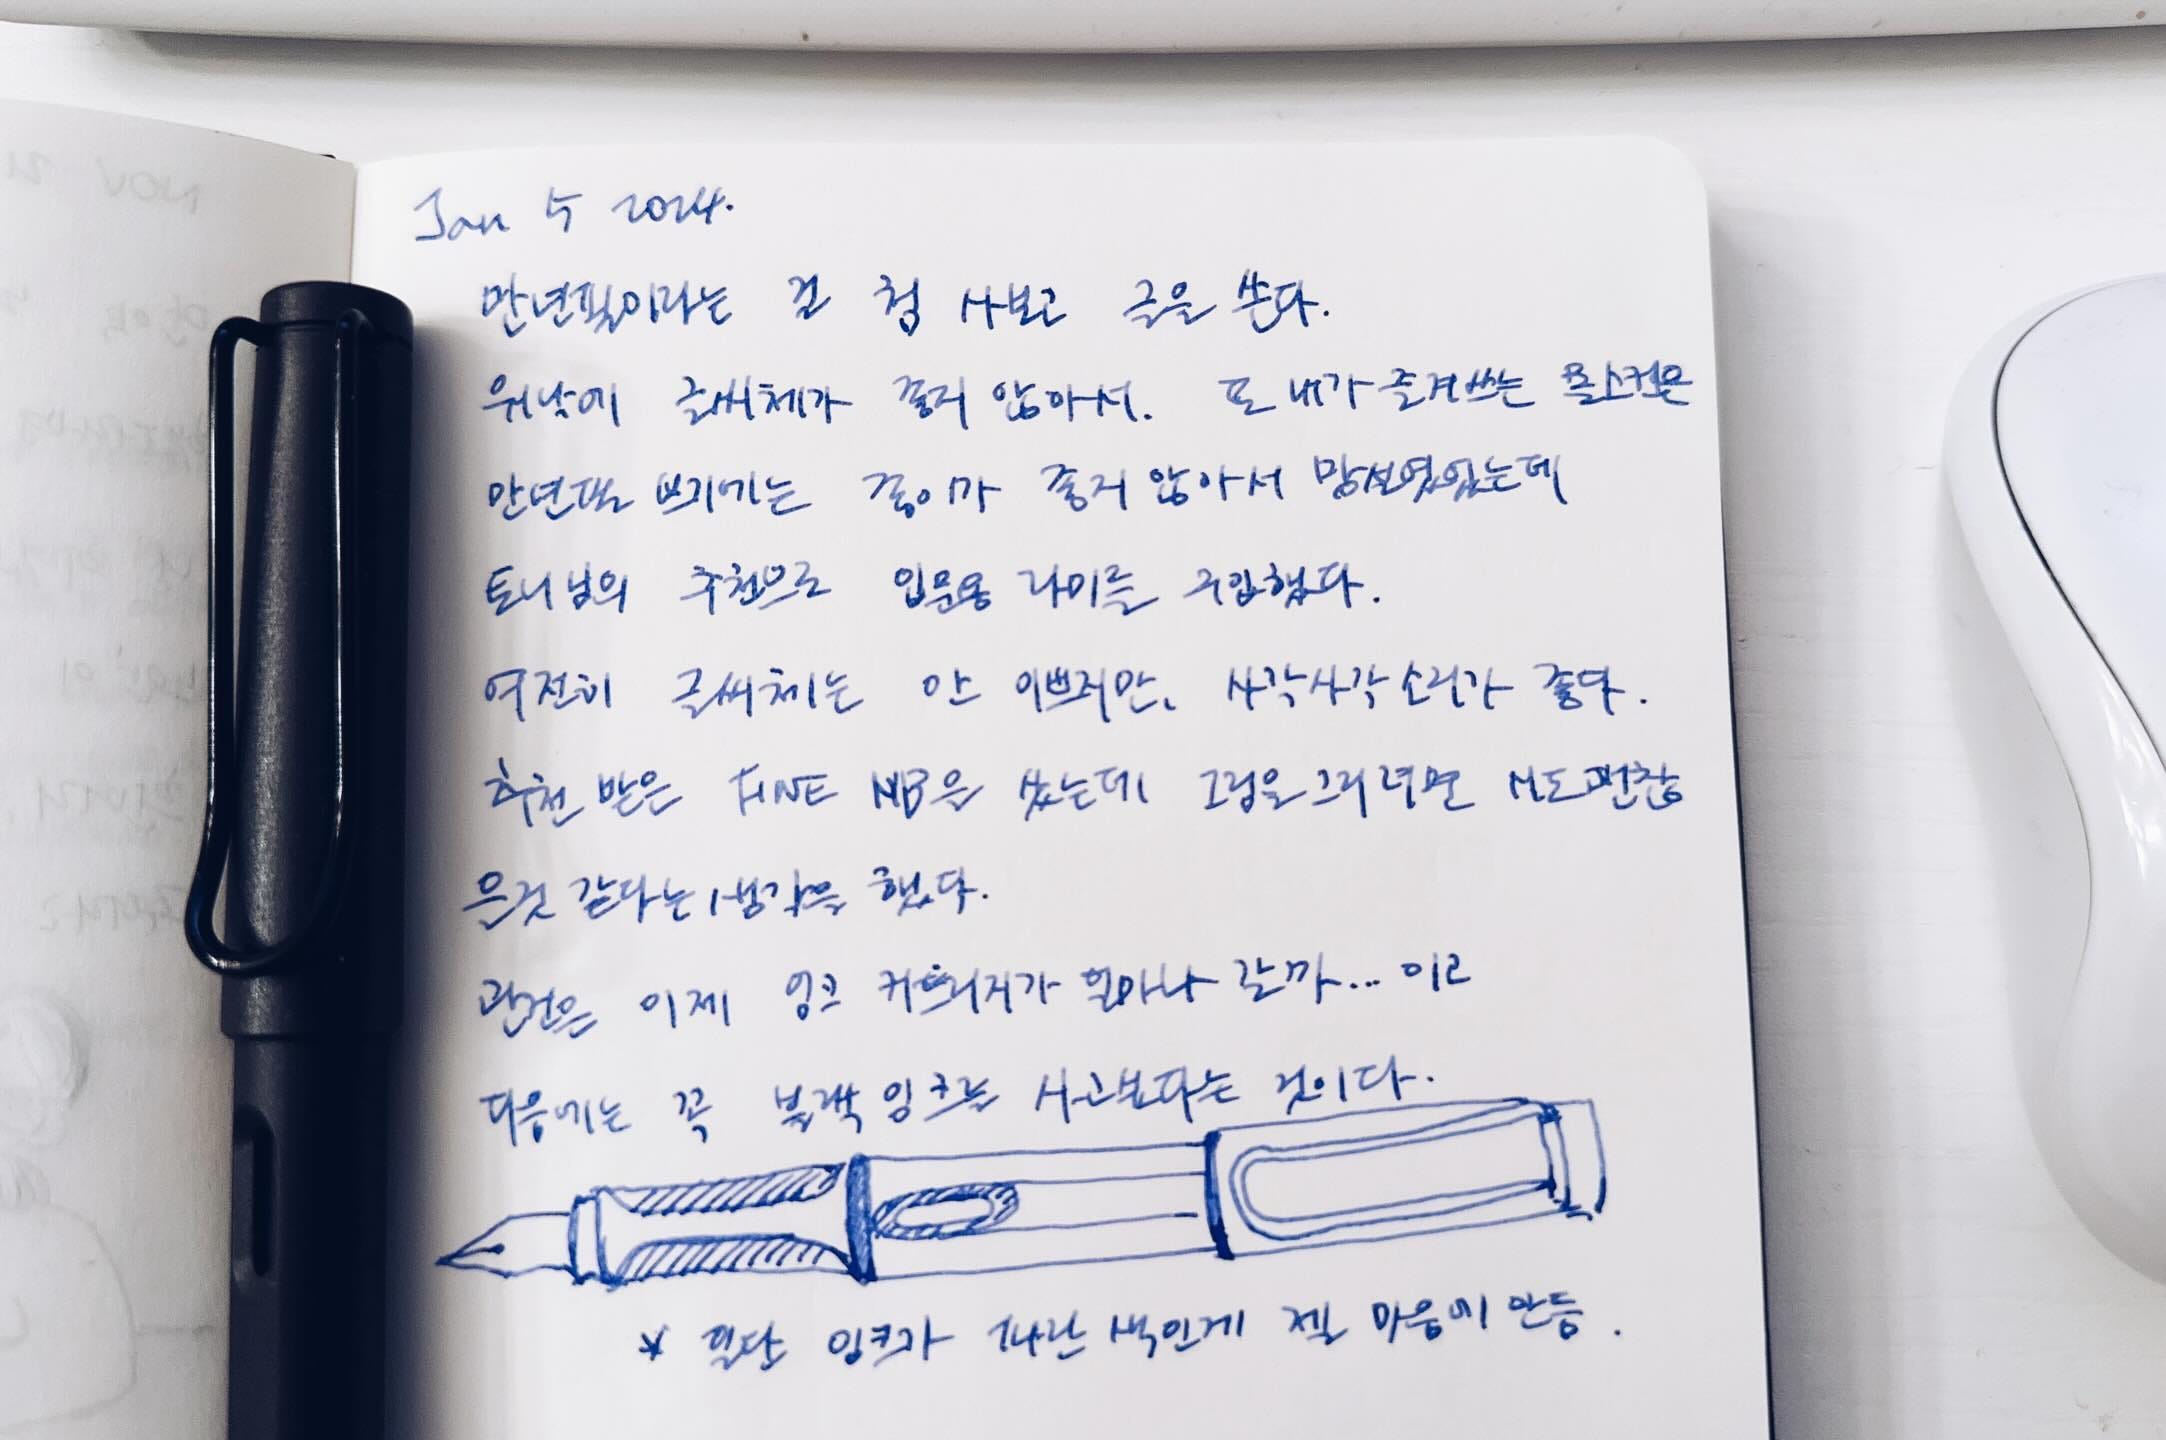 Jan 5 2024.
만년필이라는 걸 첨 사보고 글을 쓴다.
워낙에 글씨체가 좋지 않아서. 또 내가 즐겨쓰는 몰스킨은
만년필 쓰기에는 종이가 좋지 않아서 망설였었는데
토니님의 추천으로 입문용 라미를 구입했다.
여전히 글씨체는 안 이쁘지만, 사각사각 소리가 좋다.
추천 받은 FINE NIB을 썼는데 그림을그리려면 M도괜찮
은것 같다는생각을 했다.
관건은 이제 잉크 카트리지가 얼마나 갈까... 이고
다음에는 꼭 블랙 잉크를 사고보다는 것이다.
* 일단 잉크가 파란색인게 젤 마음에 안듬.
NOV 21